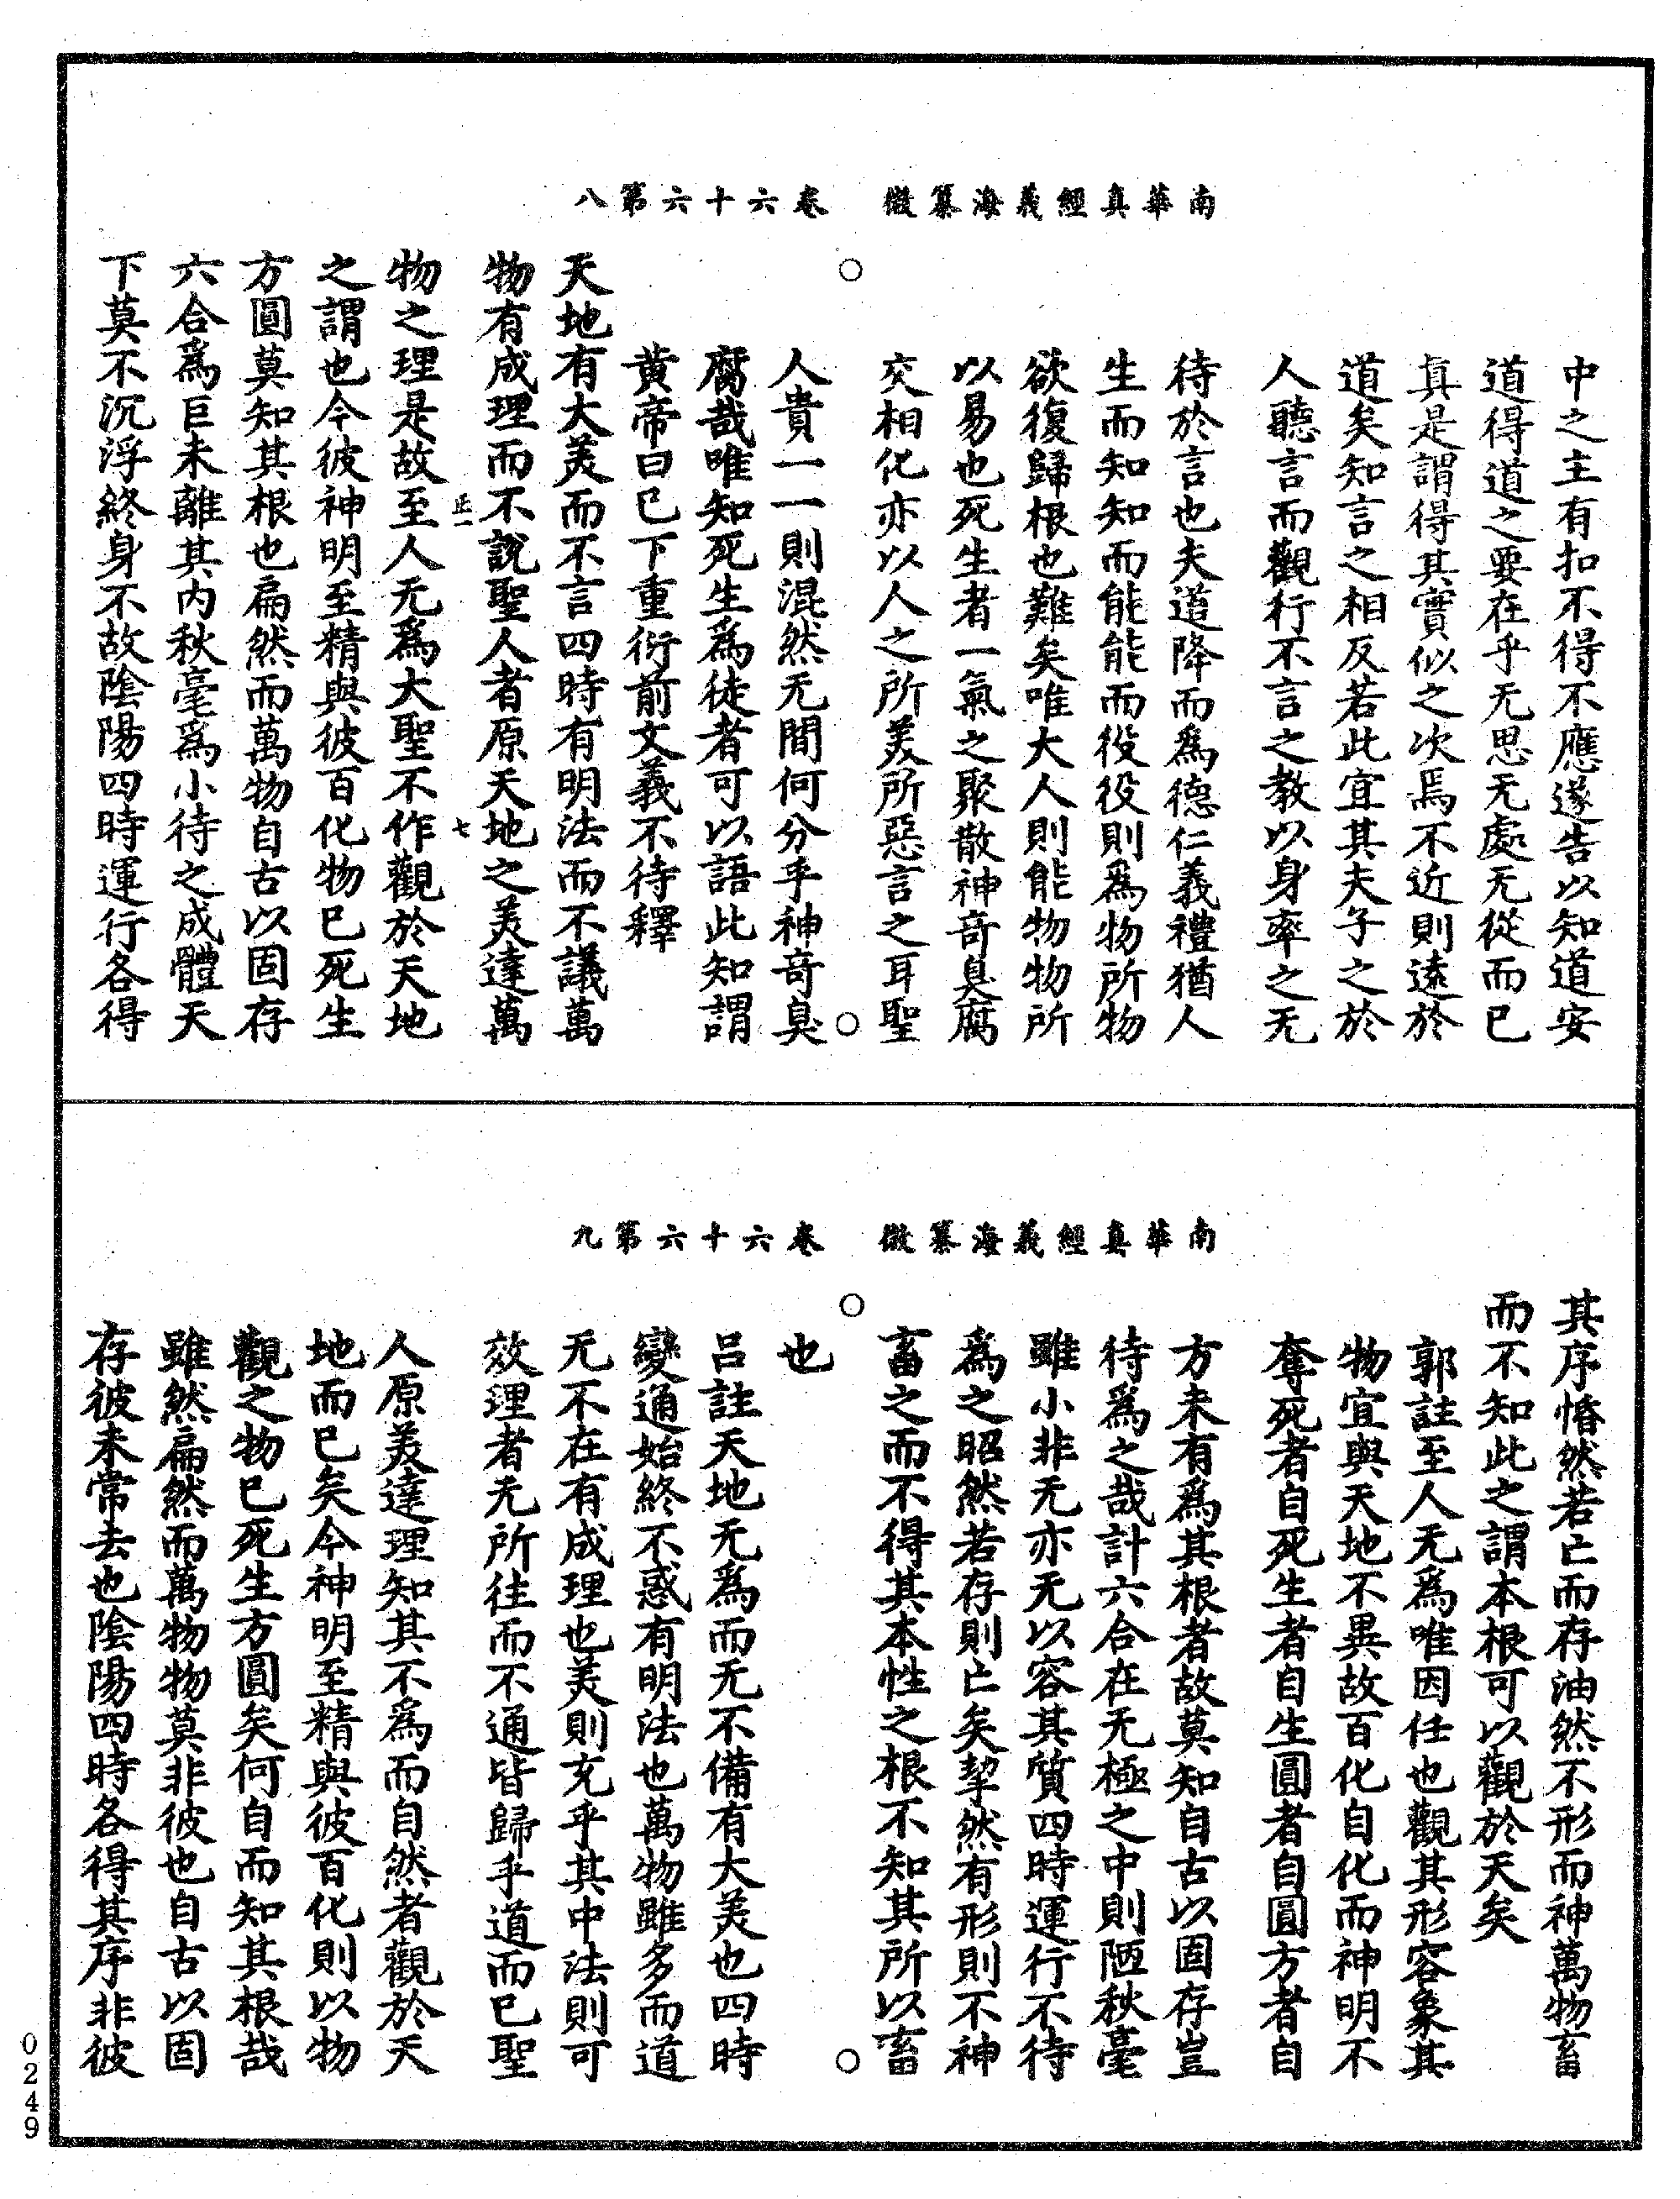 南華真經義海纂微　卷六十六第八
中之主有扣不得不應遂告以知道安
道得道之要在乎无思无處无從而已
真是謂得其實似之次焉不近則遠於
道矣知言之相反若此宜其夫子之於
人聽言而觀行不言之教以身率之无
待於言也夫道降而爲德仁義禮猶人
生而知知而能能而役役則爲物所物
欲復歸根也難矣唯大人則能物物所
以易也死生者一氣之聚散神奇臭腐
交相化亦以人之所美所惡言之耳聖
人貴一一則混然无間何分乎神奇臭
腐哉唯知死生爲徒者可以語此知謂
黃帝曰已下重衍前文義不待釋
天地有大美而不言四時有明法而不議萬
物有成理而不說聖人者原天地之美達萬
正一　七
物之理是故至人无爲大聖不作觀於天地
之謂也今彼神明至精與彼百化物已死生
方圓莫知其根也扁然而萬物自古以固存
六合爲巨未離其內秋毫爲小待之成體天
下莫不沉浮終身不故陰陽四時運行各得
南華真經義海纂微　卷六十六第九
其序惛然若亡而存油然不形而神萬物畜
而不知此之謂本根可以觀於天矣
郭註至人无爲唯因任也觀其形容象其
物宜與天地不異故百化自化而神明不
奪死者自死生者自生圓者自圓方者自
方未有爲其根者故莫知自古以固存豈
待爲之哉計六合在无極之中則陋秋毫
雖小非无亦无以容其質四時運行不待
爲之昭然若存則亡矣挈然有形則不神
畜之而不得其本性之根不知其所以畜
也
呂註天地无爲而无不備有大美也四時
變通始終不惑有明法也萬物雖多而道
无不在有成理也美則充乎其中法則可
效理者无所往而不通皆歸乎道而已聖
人原美達理知其不爲而自然者觀於天
地而已矣今神明至精與彼百化則以物
觀之物已死生方圓矣何自而知其根哉
雖然扁然而萬物物莫非彼也自古以固
存彼未常去也陰陽四時各得其序非彼
0249